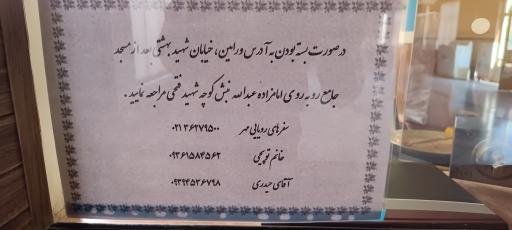 درصورت بسته بودن به آدرس ورامین، خیابان شهید بهشتی بعد از مسجد
جامع روبه روی امامزاده عبدالله نبش کوچه شهید فتحی مراجعه نمایید.
سفرهای رویایی مهر ۰۲۱۳۶۲۷۹۵۰۰
خانم توپچی ۰۹۳۶۱۵۸۴۵۶۲
آقای حیدری ۰۹۳۹۴۵۳۶۷۹۸